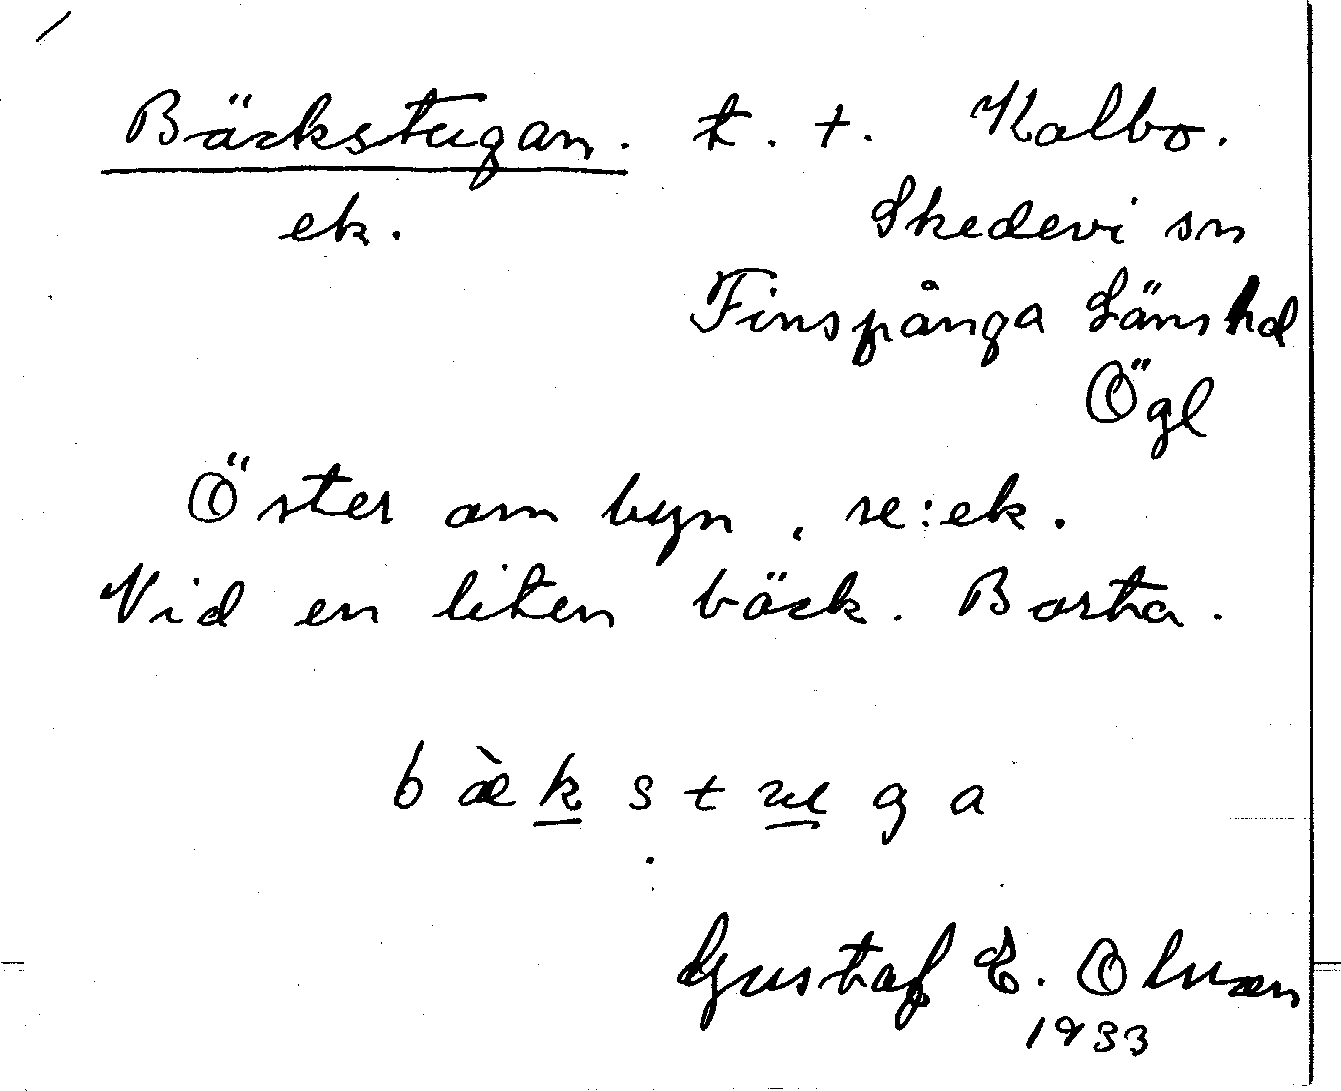 Bäckstugan. t. +. Kalbo.
ek. Skedevi sn
Finspånga Länshd
Ögl
Öster om byn, se: ek.
Vid en liten bäck. Borta.
bæ̀kstuga
Gustaf E. Olsson
1933